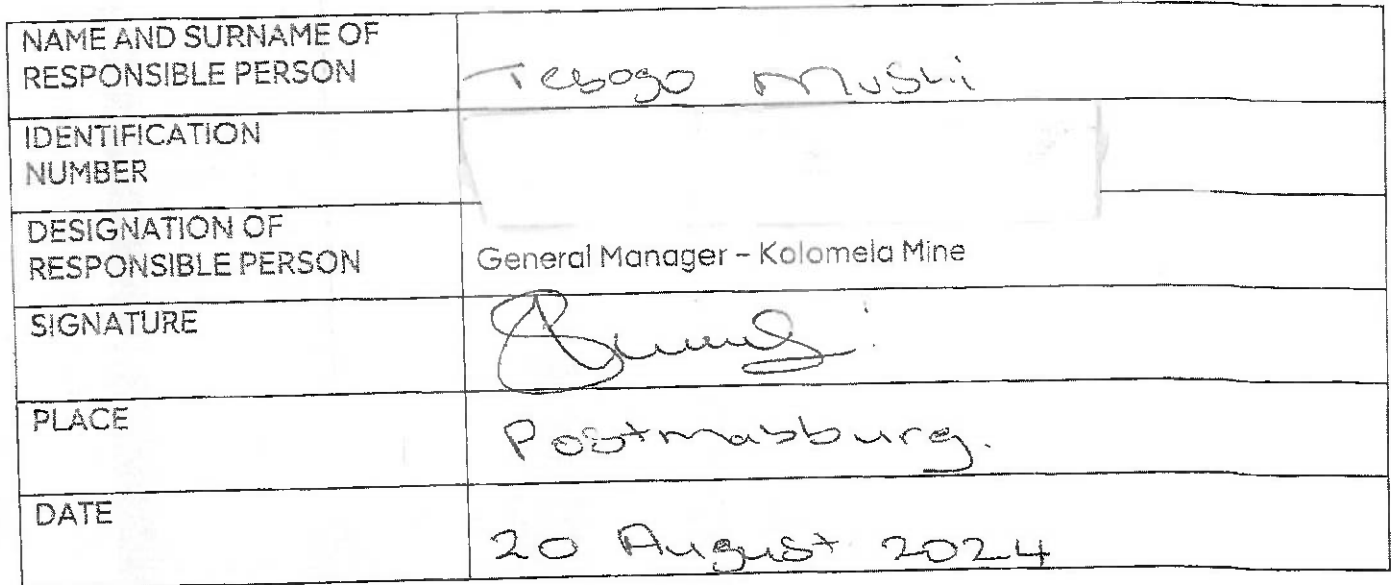 NAME AND SURNAME OF
RESPONSIBLE PERSON
Tebogo Mushi
IDENTIFICATION
NUMBER
DESIGNATION OF
RESPONSIBLE PERSON
General Manager – Kolomela Mine
SIGNATURE
PLACE
Postmasburg.
DATE
20 August 2024